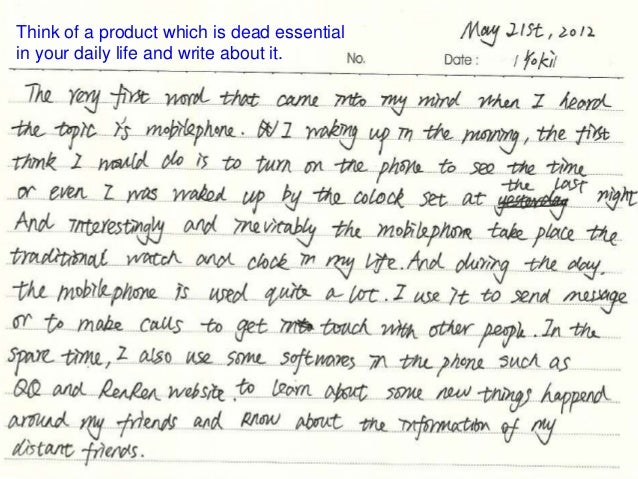 Think of a product which is dead essential
in your daily life and write about it.
May 21st, 2012
No.
Date :
The very first word that came into my mind when I heard
the topic is mobilephone. I waking up in the morning, the first
think I would do is to turn on the phone to see the time
or even I was waked up by the colock set at yesterday the last night
And interestingly and inevitably the mobilephone take place the
traditional watch and clock in my life. And during the day,
the mobilephone is used quite a lot. I use it to send message
or to make calls to get into touch with other people. In the
spare time, I also use some softwares in the phone such as
QQ and RenRen website, to learn about some new things happend
around my friends and know about the information of my
distant friends.